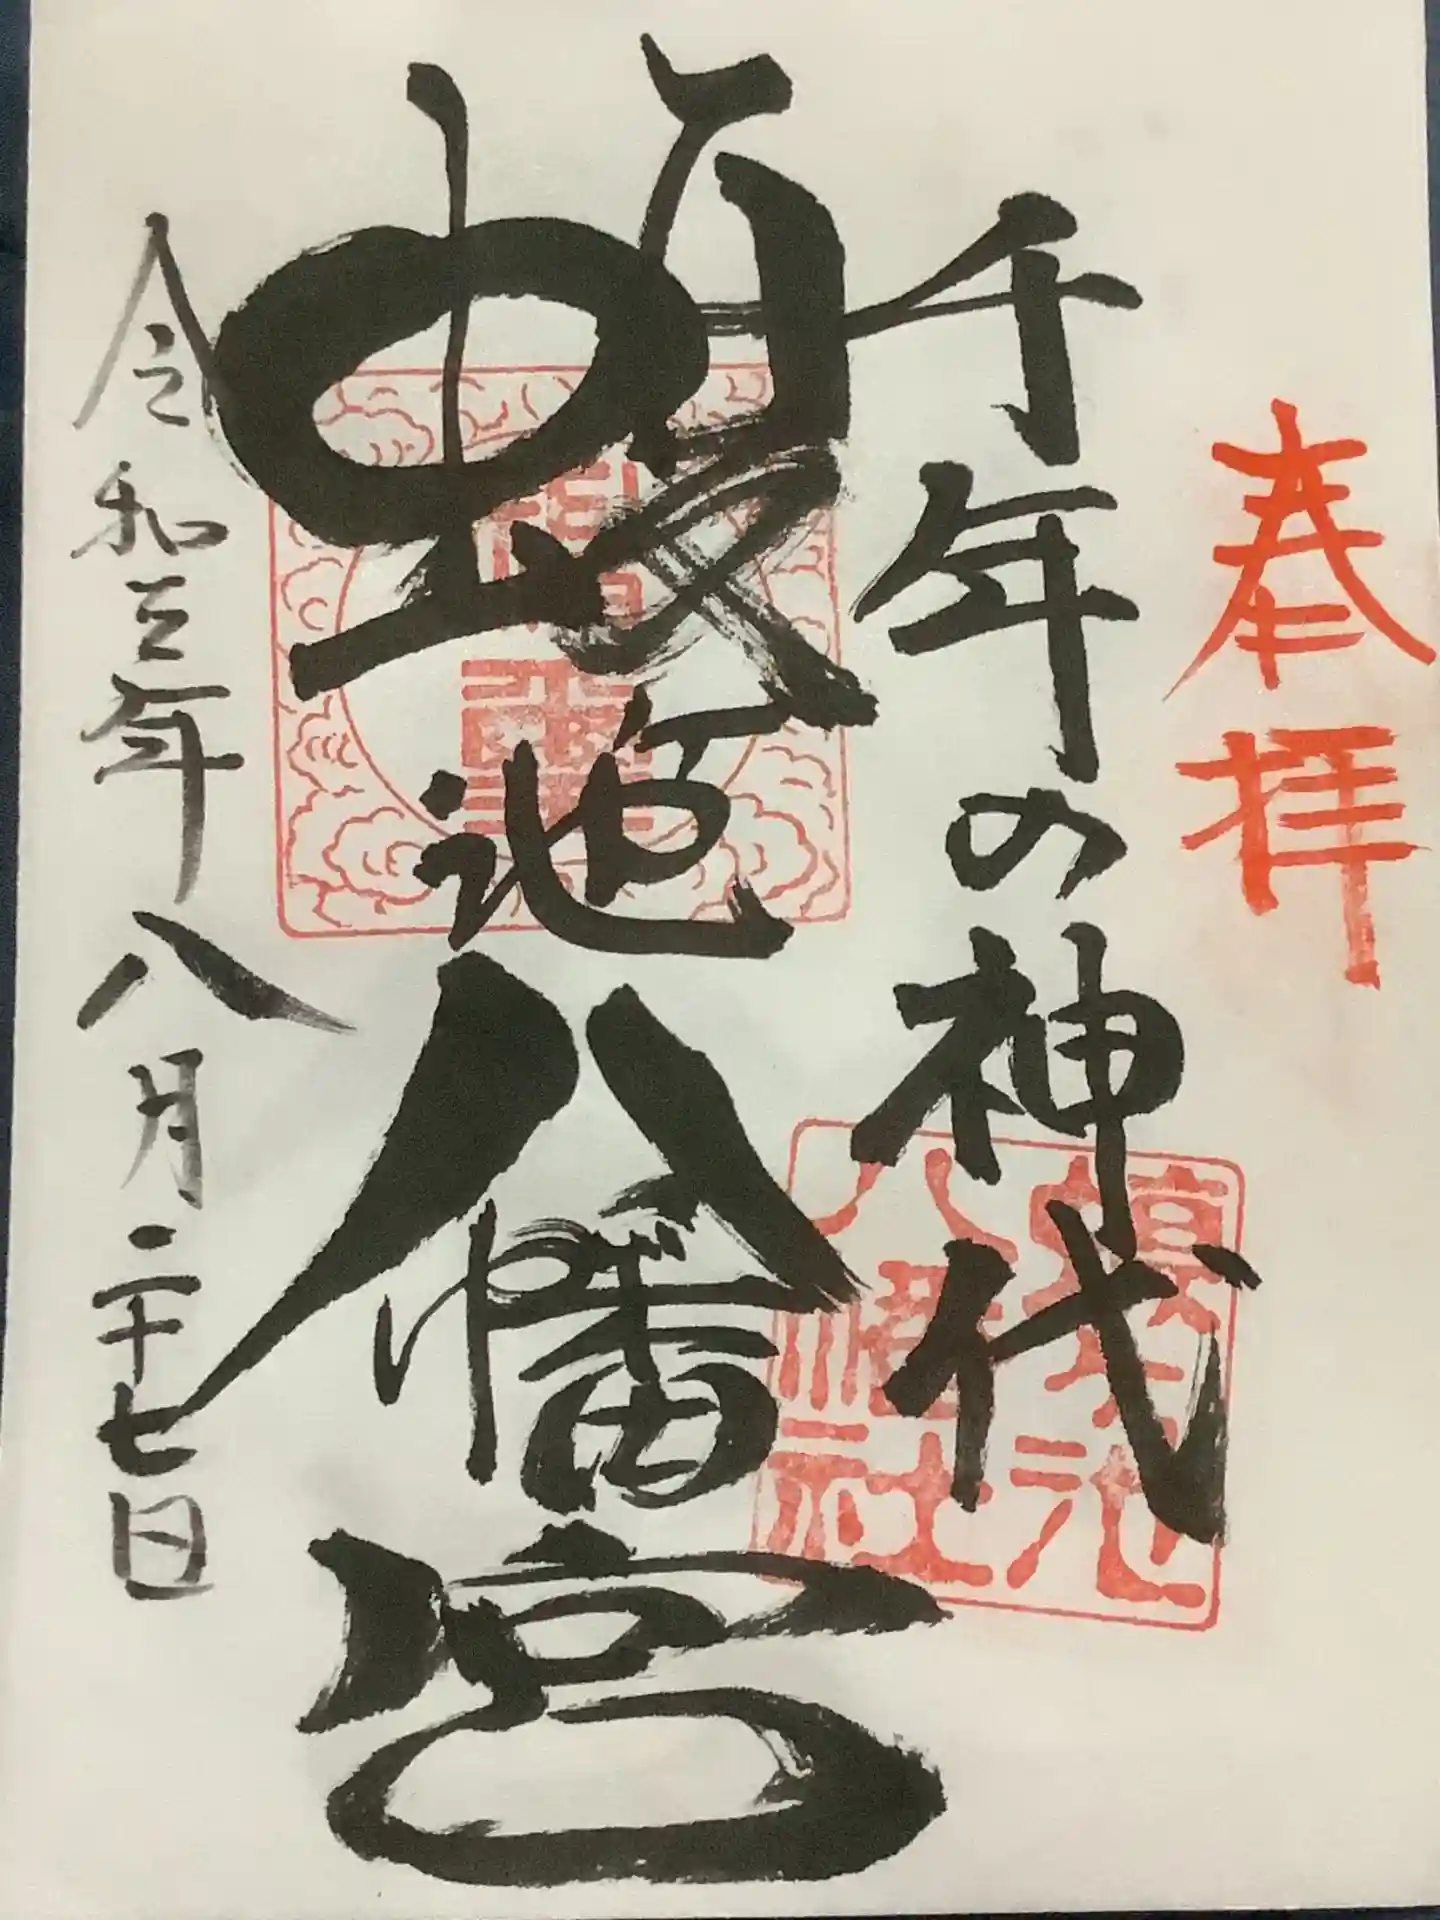 奉拝
千年の神代
蝮ヶ池八幡宮
令和三年八月二十七日
八幡社